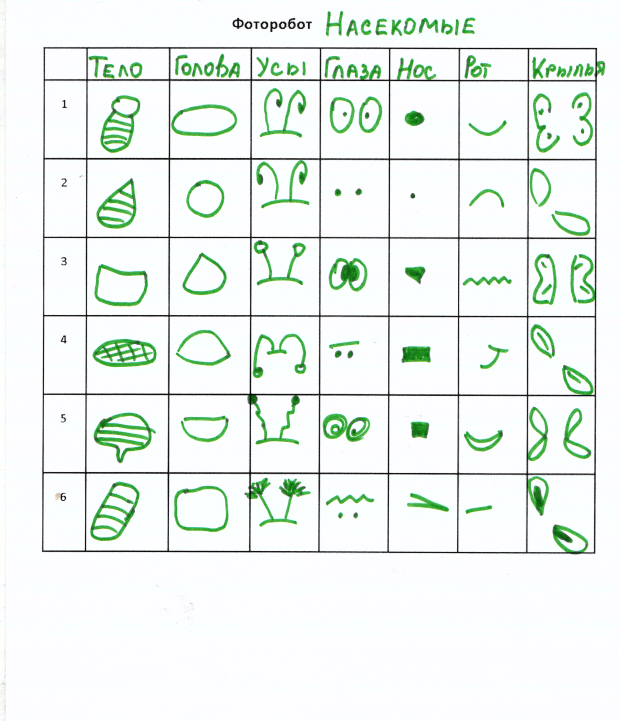 Фоторобот НАСЕКОМЫЕ
ТЕЛО ГОЛОВА УСЫ ГЛАЗА НОС РОТ КРЫЛЬЯ
1
2
3
4
5
6